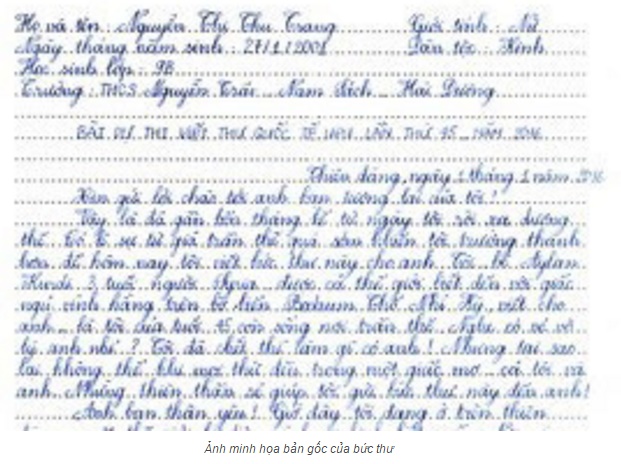 Họ và tên: Nguyễn Thị Thu Trang Giới tính: Nữ
Ngày tháng năm sinh: 27/1/2001 Dân tộc: Kinh
Học sinh lớp: 9B
Trường: THCS Nguyễn Trãi - Nam Sách - Hải Dương
BÀI DỰ THI VIẾT THƯ QUỐC TẾ UPU LẦN THỨ 45 - NĂM 2016
Thiên đàng, ngày 1 tháng 1 năm 2016
Xin gửi lời chào tới anh bạn tương lai của tôi!
Vậy là đã gần bốn tháng kể từ ngày tôi rời xa dương
thế. Có lẽ sự từ giã trần thế quá sớm khiến tôi trưởng thành
hơn để hôm nay tôi viết bức thư này cho anh. Tôi - bé Aylan
Kurdi 3 tuổi người Syria được cả thế giới biết đến với giấc
ngủ vĩnh hằng trên bờ biển Bodrum Thổ Nhĩ Kỳ, viết cho
anh - là tôi của tuổi 45 còn sống nơi trần thế. Nghe có vẻ vô
lý anh nhỉ? Tôi đã chết thì làm gì có anh! Nhưng tại sao
lại không thể khi mọi thứ đều trong một giấc mơ của tôi và
anh. Những thiên thần sẽ giúp tôi gửi bức thư này đến anh!
Anh bạn thân yêu! Giờ đây tôi đang ở trên thiên
Ảnh minh họa bản gốc của bức thư